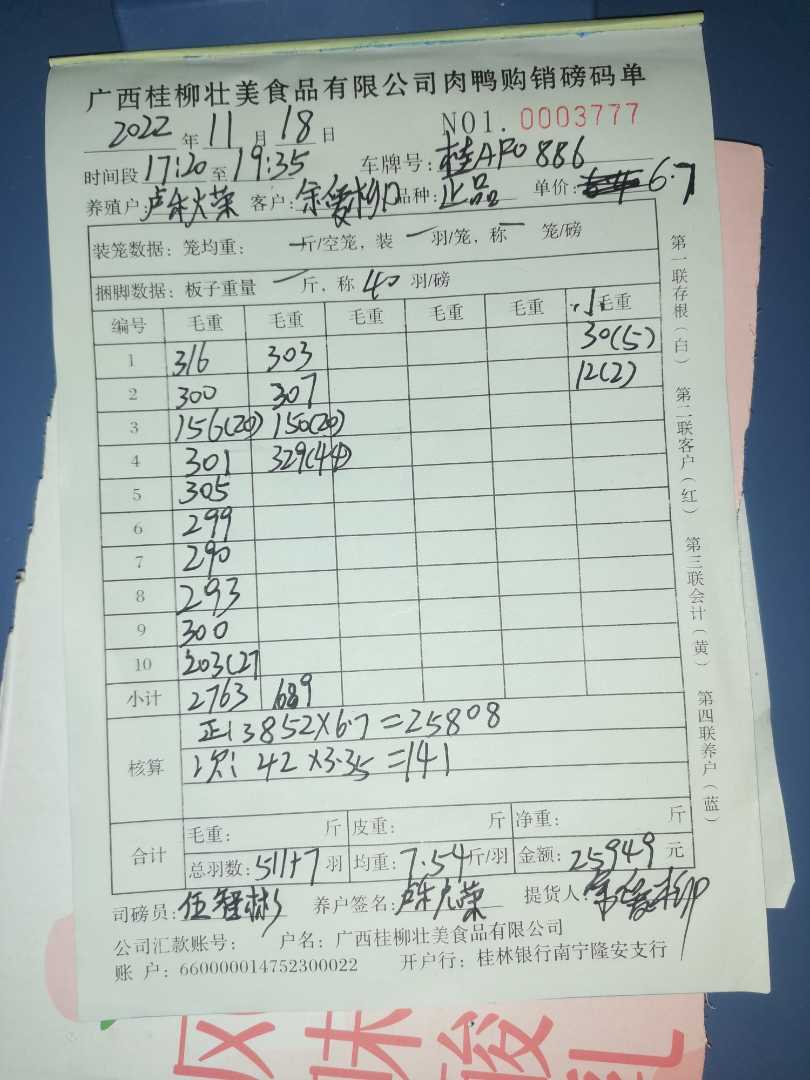 广西桂柳壮美食品有限公司肉鸭购销磅码单
2022 年 11 月 18 日 NO1. 0003777
时间段 17:20 至 19:35 车牌号: 桂AF0886
养殖户: 卢 荣 客户: 品种: 正品 单价: 6.7
装笼数据: 笼均重: 一 斤/空笼, 装 一 羽/笼, 称 一 笼/磅
捆脚数据: 板子重量 一 斤, 称 40 羽/磅
编号 毛重 毛重 毛重 毛重 毛重 小毛重
1 316 303 30(5)
2 300 307 12(2)
3 156(20) 150(20)
4 301 329(44)
5 305
6 299
7 290
8 293
9 300
10 203(27
小计 2763 689
核算 正: 3852×6.7=25808
次: 42×3.35=141
合计 毛重: 斤 皮重: 斤 净重: 斤
总羽数: 511+7 羽 均重: 7.54 斤/羽 金额: 25949 元
司磅员: 伍智彬 养户签名: 卢 荣 提货人:
公司汇款账号: 户名: 广西桂柳壮美食品有限公司
账 户: 660000014752300022 开户行: 桂林银行南宁隆安支行
第一联存根(白) 第二联客户(红) 第三联会计(黄) 第四联养户(蓝)